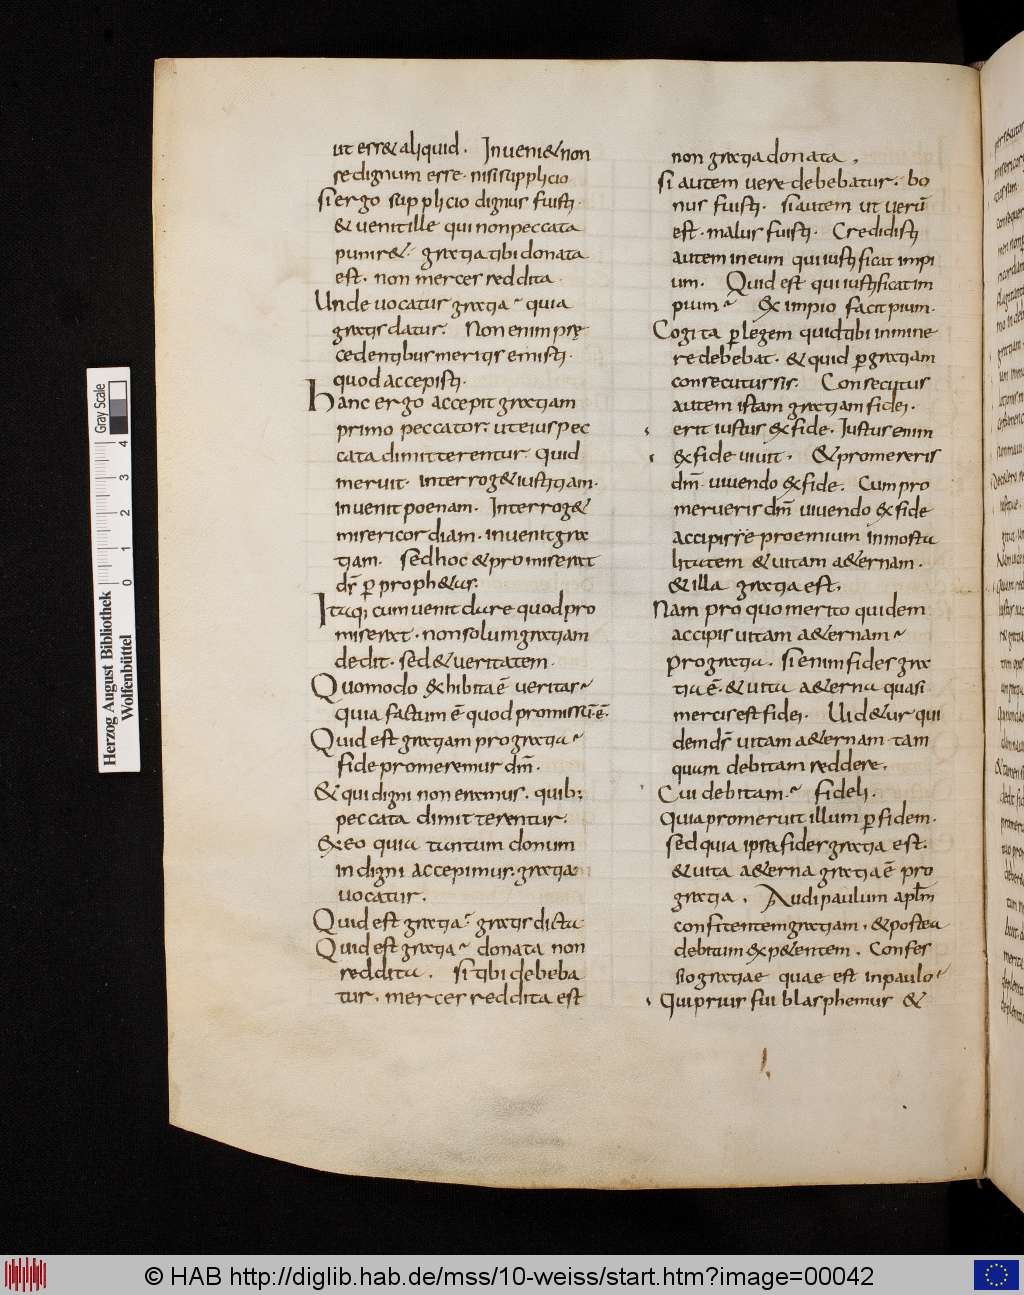 ut ess& aliquid. Inueni& non
se dignum esse. nisi supplicio
si ergo supplicio dignus fuisti.
& uenit ille qui non peccata
punir&. gratia tibi donata
est. non merces reddita.
Unde uocatur gratia? quia
gratis datur. Non enim prę
cedentibus meritis emisti.
quod accepisti.
Hanc ergo accepit gratiam
primo peccator. ut eius pec
cata dimitterentur. Quid
meruit. interrog& iustitiam.
inuenit poenam. Interrog&
misericordiam. inuenit gra
tiam. sed hoc & promiserat
ds̄ ꝑ proph&as.
Itaq; cum uenit dare quod pro
miserat. non solum gratiam
dedit. sed & ueritatem.
Quomodo exhibita ē ueritas?
Quia factum ē quod promissū ē.
Quid est gratiam pro gratia?
fide promeremur dm̄.
& qui digni non eramus. quib;
peccata dimitterentur.
Ex eo quia tantum donum
indigni accepimus. gratia
uocatur.
Quid est gratia? gratis data
Quid est gratia? donata non
reddita. si tibi debeba
tur. merces reddita est
non gratia donata.
si autem uere debebatur. bo
nus fuisti. si autem ut uerū
est. malus fuisti. Credidisti
autem in eum qui iustificat impi
um. Quid est qui iustificat im
pium? Ex impio facit pium.
Cogita ꝑ legem quid tibi inmine
re debebat. & quid ꝑ gratiam
consecutus sis. Consecutus
autem istam gratiam fidei.
erit iustus ex fide. Iustus enim
ex fide uiuit. & promereris
dm̄. uiuendo ex fide. Cum pro
merueris dm̄ uiuendo ex fide
accipis proemium inmorta
litatem & uitam a&ernam.
& illa gratia est.
Nam pro quo merito quidem
accipis uitam a&ernam?
pro gratia. Si enim fides gra
tia ē. & uita a&erna quasi
merces est fidei. Uid&ur qui
dem ds̄ uitam a&ernam tam
quam debitam reddere.
Cui debitam? fideli.
Quia promeruit illum ꝑ fidem.
sed quia ipsa fides gratia est.
& uita a&erna gratia ē pro
gratia. Audi paulum aplm̄
confitentem gratiam. & postea
debitum exp&entem. Confes
sio gratiae quae est in paulo?
Qui prius fui blasphemus &
Gray Scale
0 1 2 3 4
Herzog August Bibliothek
Wolfenbüttel
© HAB http://diglib.hab.de/mss/10-weiss/start.htm?image=00042